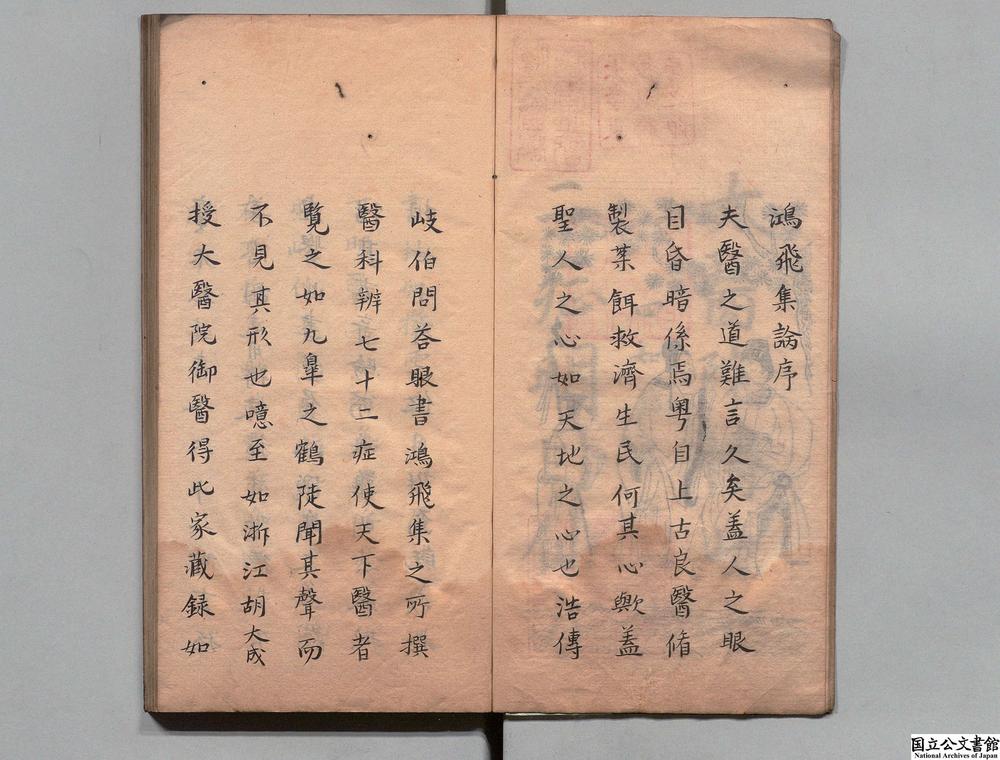 鴻飛集論序
夫醫之道難言久矣蓋人之眼
目昏暗係焉粤自上古良醫脩
製葉餌救濟生民何其心歟蓋
聖人之心如天地之心也浩傳
岐伯問荅眼書鴻飛集之所撰
醫科辨七十二症使天下醫者
覽之如九臯之鶴陡聞其聲而
不見其形也噫至如浙江胡大成
授大醫院御醫得此家藏録如
国立公文書館
National Archives of Japan